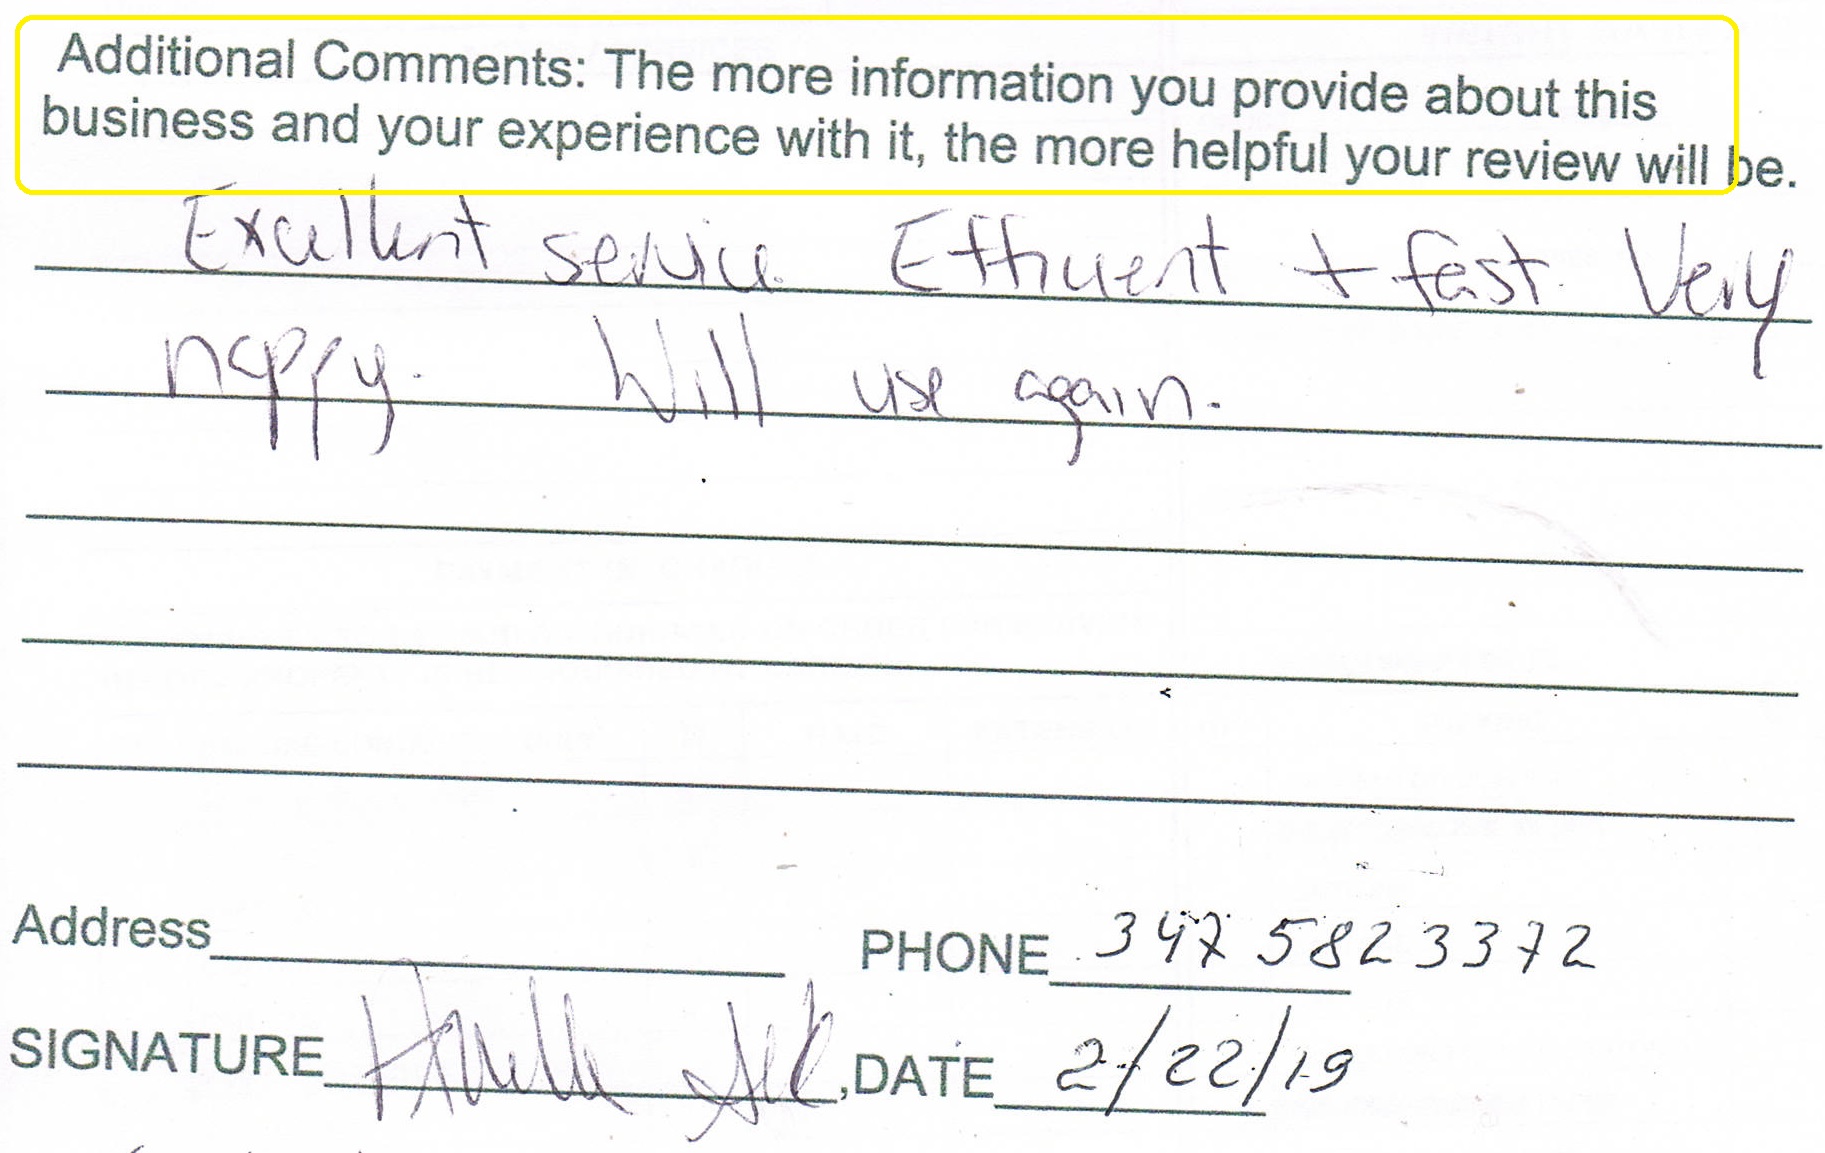 Additional Comments: The more information you provide about this
business and your experience with it, the more helpful your review will be.
Excellent service. Efficient + fast. Very
happy. Will use again.
Address
PHONE 347 582 3372
SIGNATURE , DATE 2/22/19